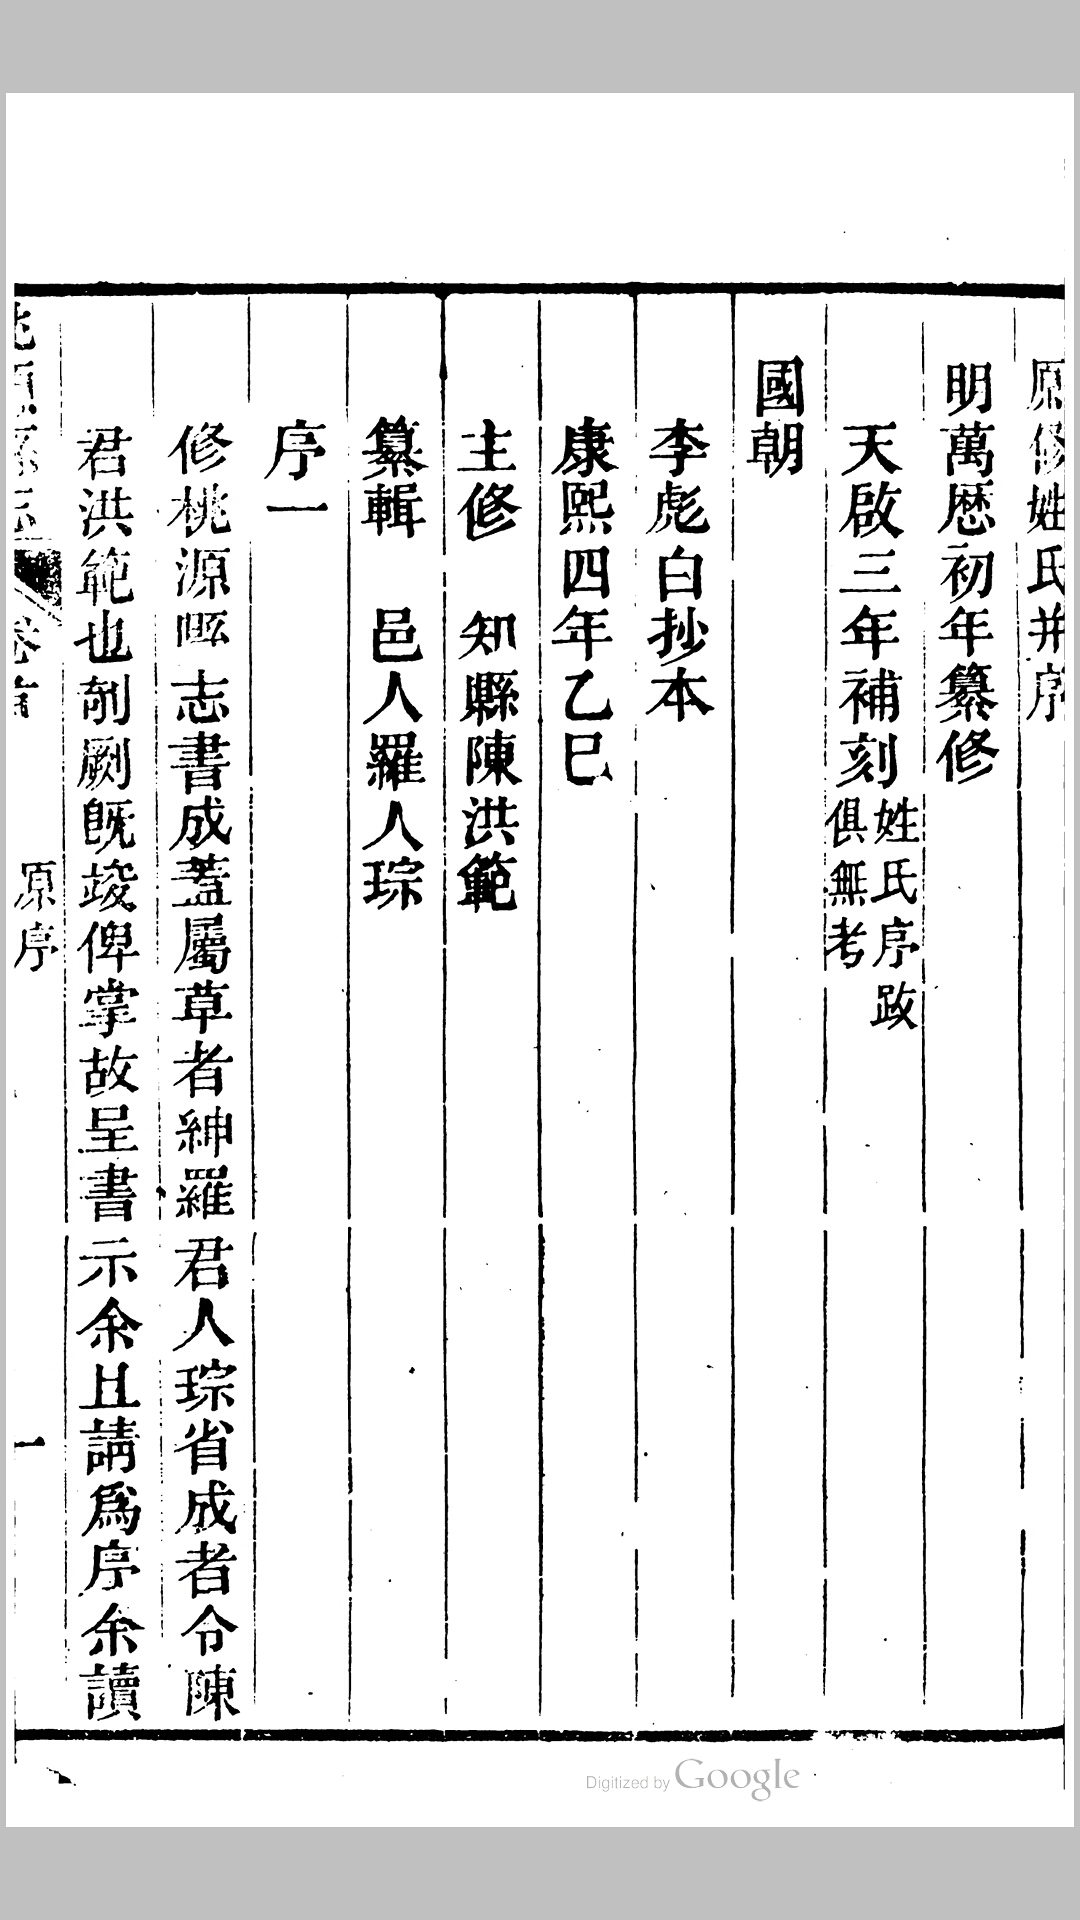 原修姓氏并序
明萬歷初年纂修
天啟三年補刻姓氏序跋俱無考
國朝
李彪白抄本
康熙四年乙巳
主修 知縣陳洪範
纂輯 邑人羅人琮
序一
修桃源縣志書成蓋屬草者紳羅君人琮省成者令陳
君洪範也剞劂既竣俾掌故呈書示余且請爲序余讀
桃源縣志 卷首 原序 一
Digitized by Google